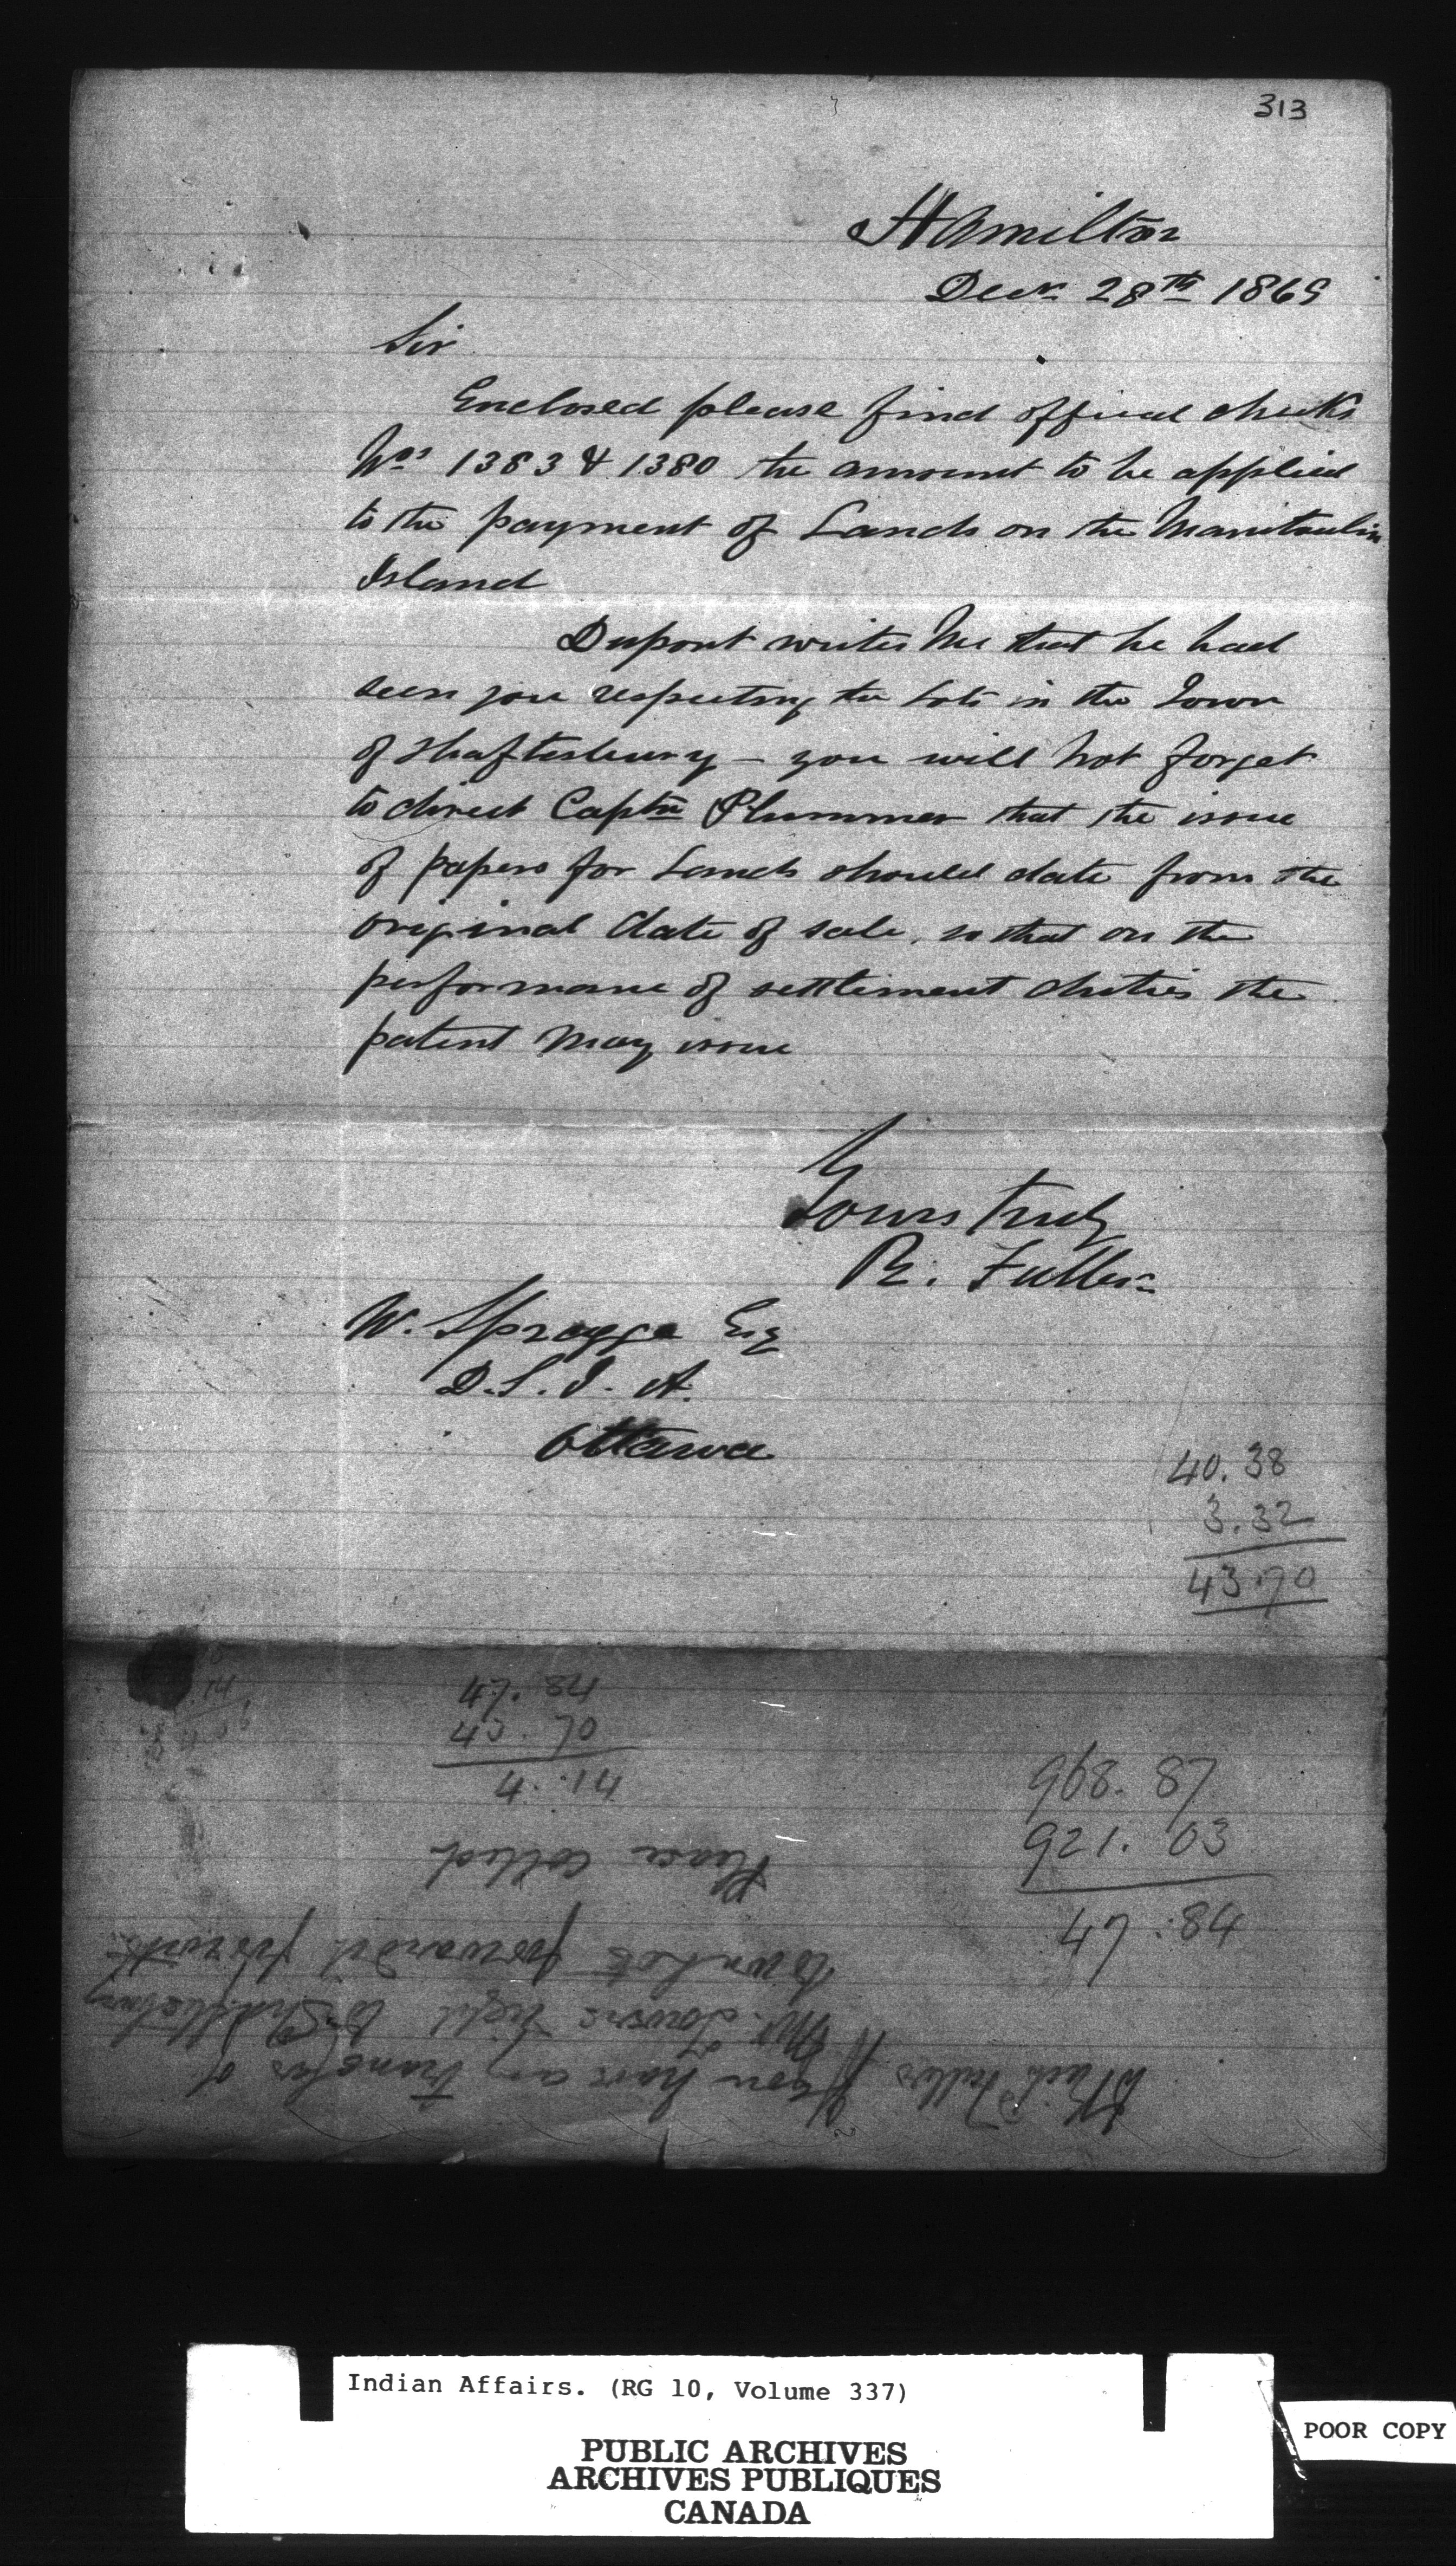 313
Hamilton
Decr 28th 1869
Sir
Enclosed please find official checks
Nos 1383 & 1380 the amount to be applied
to the payment of Lands on the Manitoulin
Island
Dupont writes me that he had
seen you respecting the Lots in the Town
of Shaftesbury – you will not forget
to direct Captn Plummer that the issue
of papers for Lands should date from the
original date of sale, so that on the
performance of settlement duties the
patent may issue
Yours truly
R. Fuller
W. Spragge Esq
D.S.I.A.
Ottawa
40.38
3.32
43.70
47.84
43.70
4.14
968.87
921.03
47.84
If you have any transfer of
Mr. Towns right to Shaftesbury
town Lots forward it
Please collect
Indian Affairs. (RG 10, Volume 337)
PUBLIC ARCHIVES
ARCHIVES PUBLIQUES
CANADA
POOR COPY